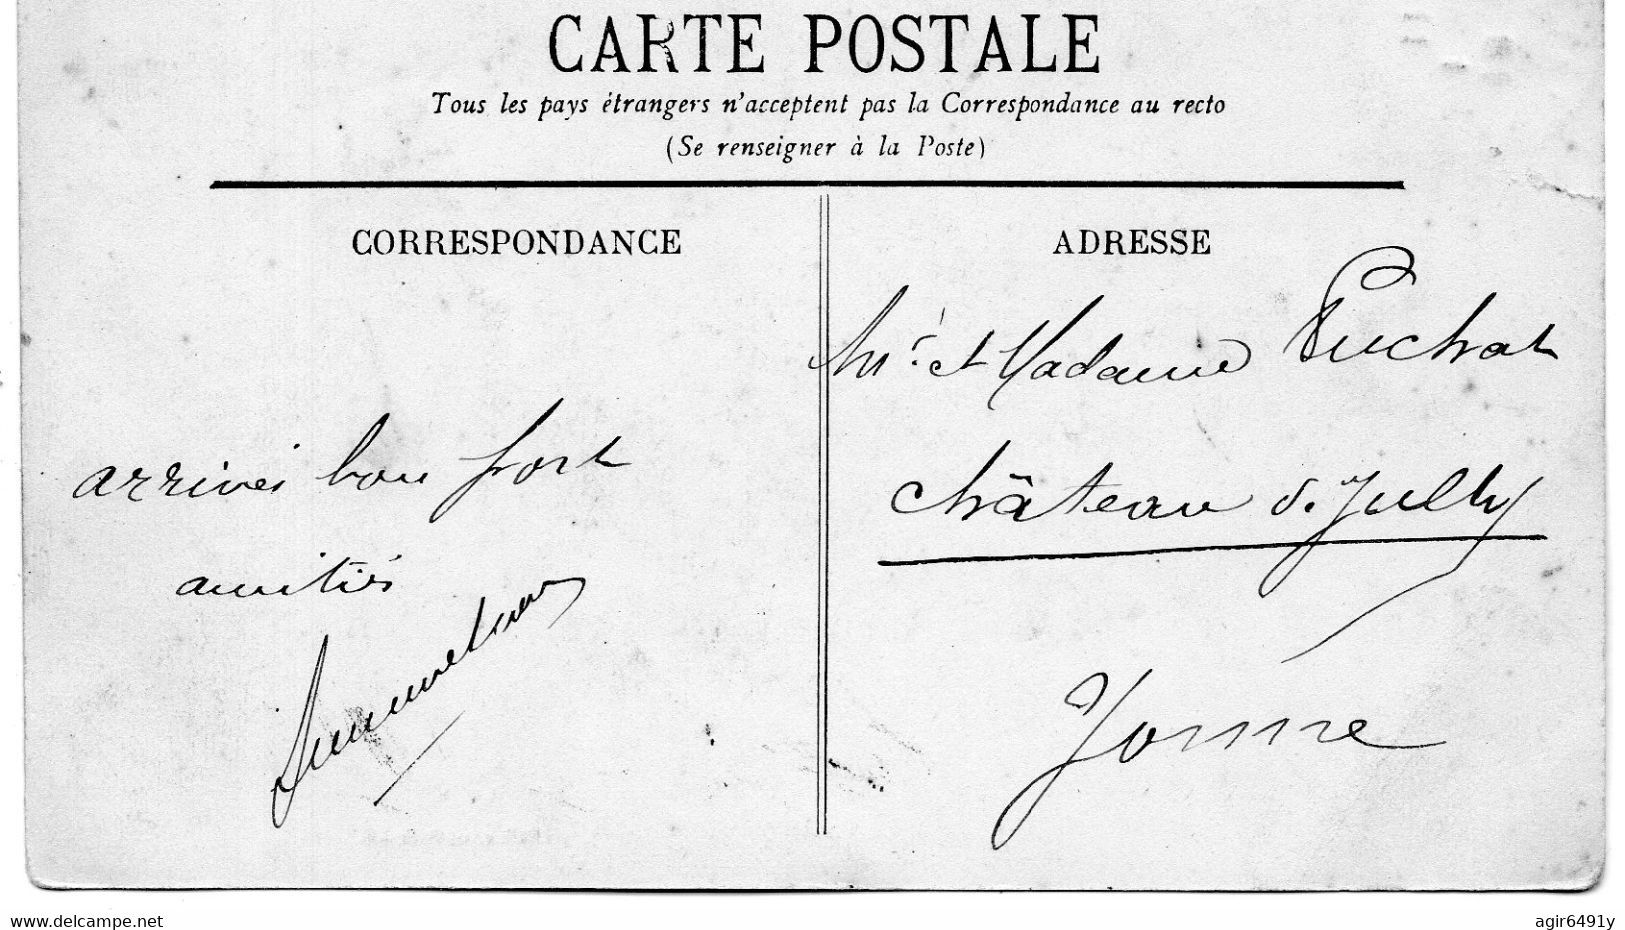 CARTE POSTALE
Tous les pays étrangers n'acceptent pas la Correspondance au recto
(Se renseigner à la Poste)
CORRESPONDANCE
ADRESSE
arrivés bon port
amitiés
Mr. et Madame Puchat
château d. Jully
Yonne
www.delcampe.net
agir6491y